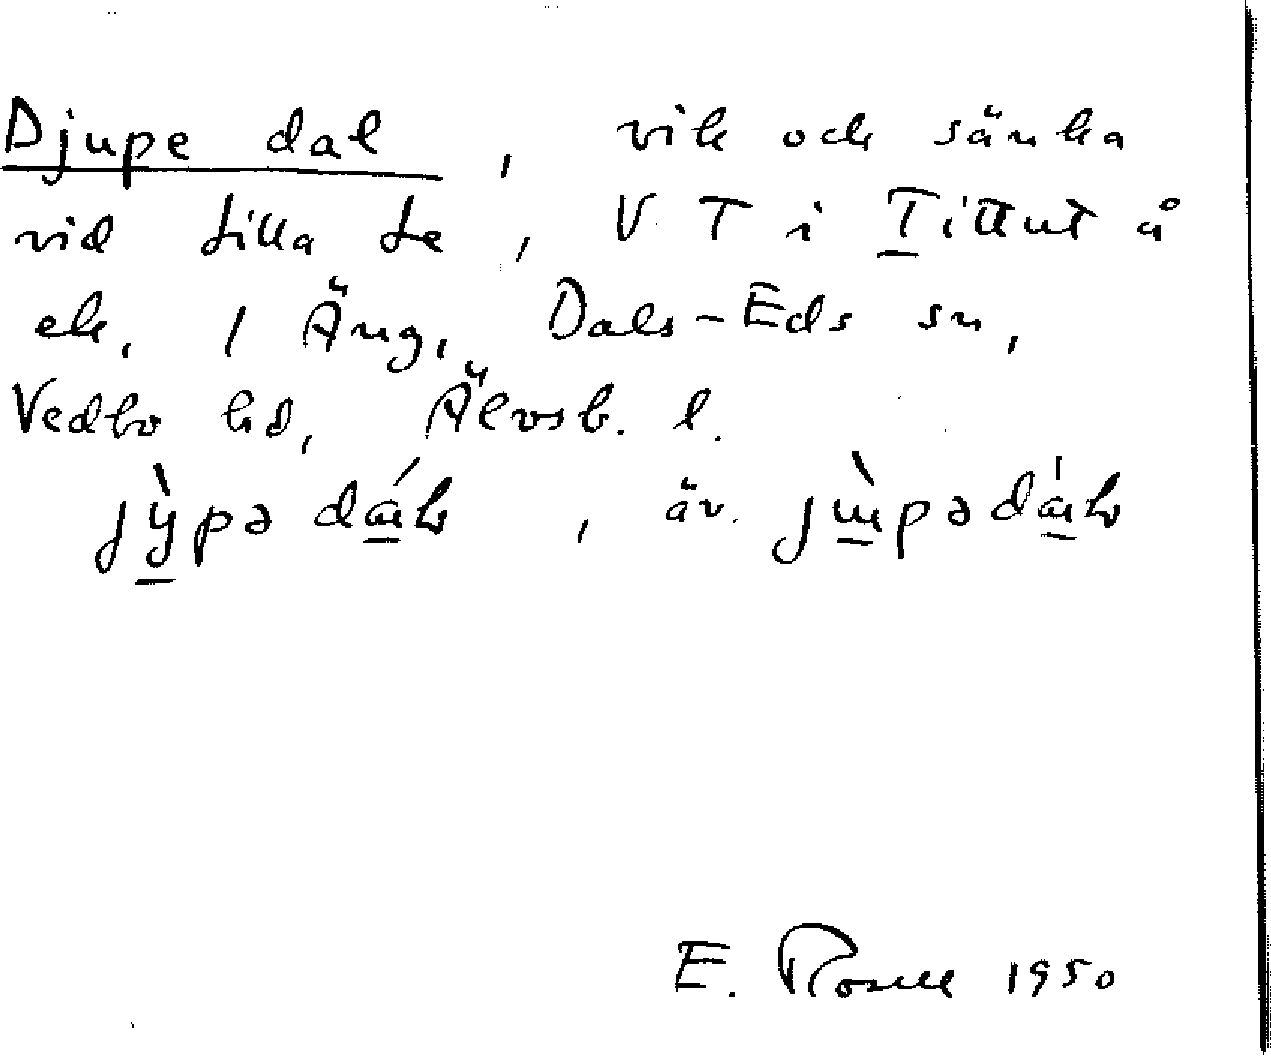 Djupe dal, vik och sänka
vid Lilla Le, V T i Tittut å
ek, 1 Äng, Dals-Eds sn,
Vedbo hd, Älvsb. l.
, äv.
E. Rosell 1950